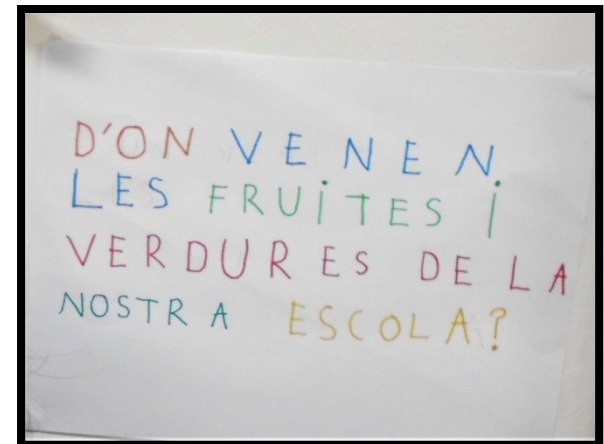 D'ON VENEN
LES FRUITES I
VERDURES DE LA
NOSTRA ESCOLA?